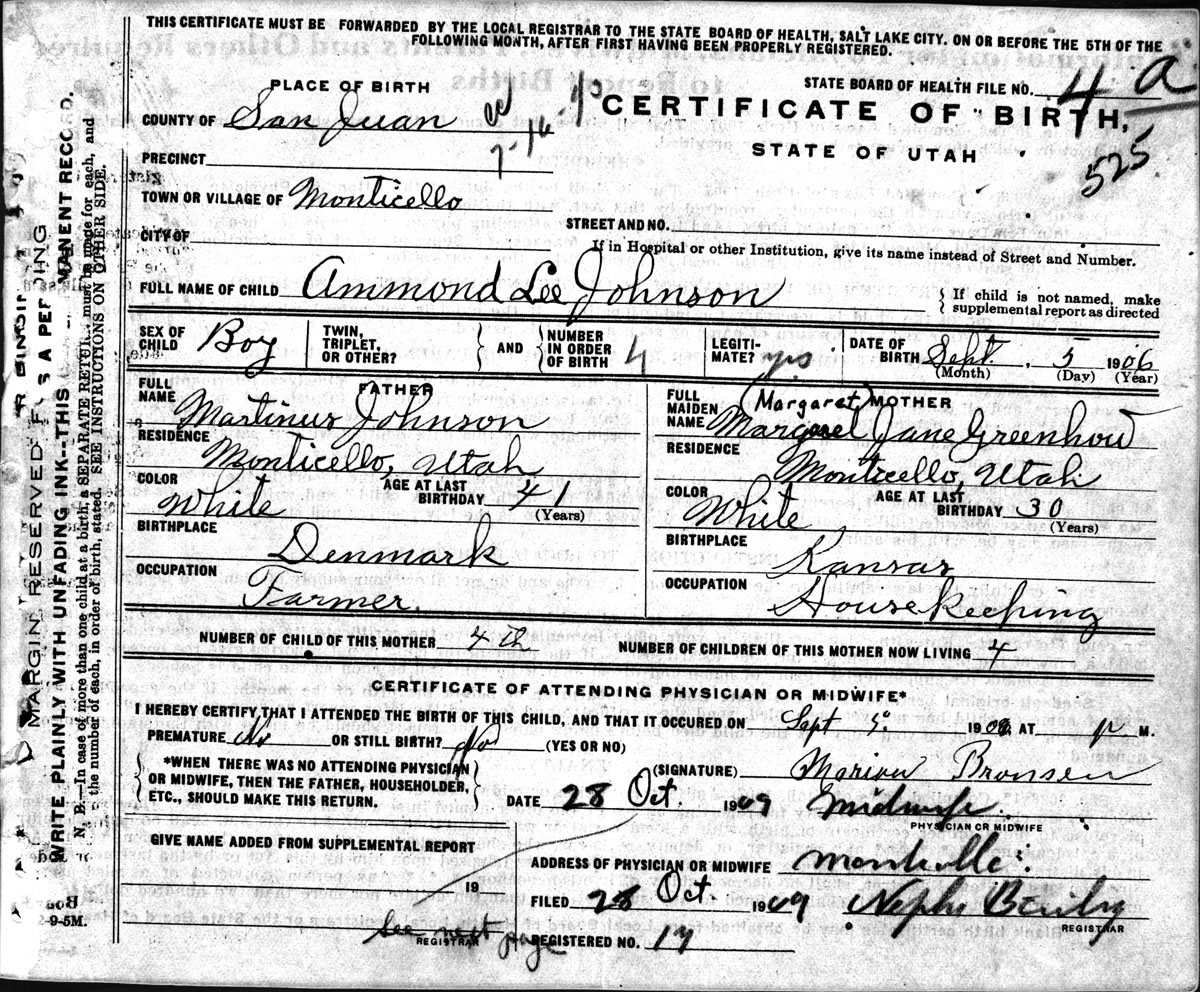 THIS CERTIFICATE MUST BE FORWARDED BY THE LOCAL REGISTRAR TO THE STATE BOARD OF HEALTH, SALT LAKE CITY. ON OR BEFORE THE 5TH OF THE
FOLLOWING MONTH, AFTER FIRST HAVING BEEN PROPERLY REGISTERED.
STATE BOARD OF HEALTH FILE NO. 4 a
PLACE OF BIRTH
CERTIFICATE OF BIRTH,
COUNTY OF San Juan
STATE OF UTAH
525
PRECINCT
TOWN OR VILLAGE OF Monticello
STREET AND NO.
CITY OF
If in Hospital or other Institution, give its name instead of Street and Number.
FULL NAME OF CHILD Ammond Lee Johnson
If child is not named, make
supplemental report as directed
SEX OF CHILD Boy TWIN, TRIPLET, OR OTHER? AND NUMBER IN ORDER OF BIRTH 4 LEGITI-MATE? yes DATE OF BIRTH Sept. 5 1906
(Month) (Day) (Year)
FATHER
FULL NAME Martinus Johnson
RESIDENCE
Monticello, Utah
COLOR White AGE AT LAST BIRTHDAY 41
(Years)
BIRTHPLACE
Denmark
OCCUPATION
Farmer.
(Margaret) MOTHER
FULL MAIDEN NAME Margaret Jane Greenhow
RESIDENCE
Monticello, Utah
COLOR White AGE AT LAST BIRTHDAY 30
(Years)
BIRTHPLACE
Kansas
OCCUPATION
Housekeeping
NUMBER OF CHILD OF THIS MOTHER 4th NUMBER OF CHILDREN OF THIS MOTHER NOW LIVING 4
CERTIFICATE OF ATTENDING PHYSICIAN OR MIDWIFE*
I HEREBY CERTIFY THAT I ATTENDED THE BIRTH OF THIS CHILD, AND THAT IT OCCURED ON Sept 5. 190 AT p M.
PREMATURE No OR STILL BIRTH? No (YES OR NO)
*WHEN THERE WAS NO ATTENDING PHYSICIAN
OR MIDWIFE, THEN THE FATHER, HOUSEHOLDER,
ETC., SHOULD MAKE THIS RETURN.
(SIGNATURE) Marion Bronsen
DATE 28 Oct. 1909 Midwife.
PHYSICIAN OR MIDWIFE
GIVE NAME ADDED FROM SUPPLEMENTAL REPORT
19
See next page
REGISTRAR
ADDRESS OF PHYSICIAN OR MIDWIFE
FILED 28 Oct 1909 Nephi
REGISTRAR
REGISTERED NO. 17
MARGIN RESERVED
WRITE PLAINLY WITH UNFADING INK—THIS
N. B.—In case of more than one child at a birth, a SEPARATE RETURN must be made for each, and
the number of each, in order of birth, stated. SEE INSTRUCTIONS ON OTHER SIDE.